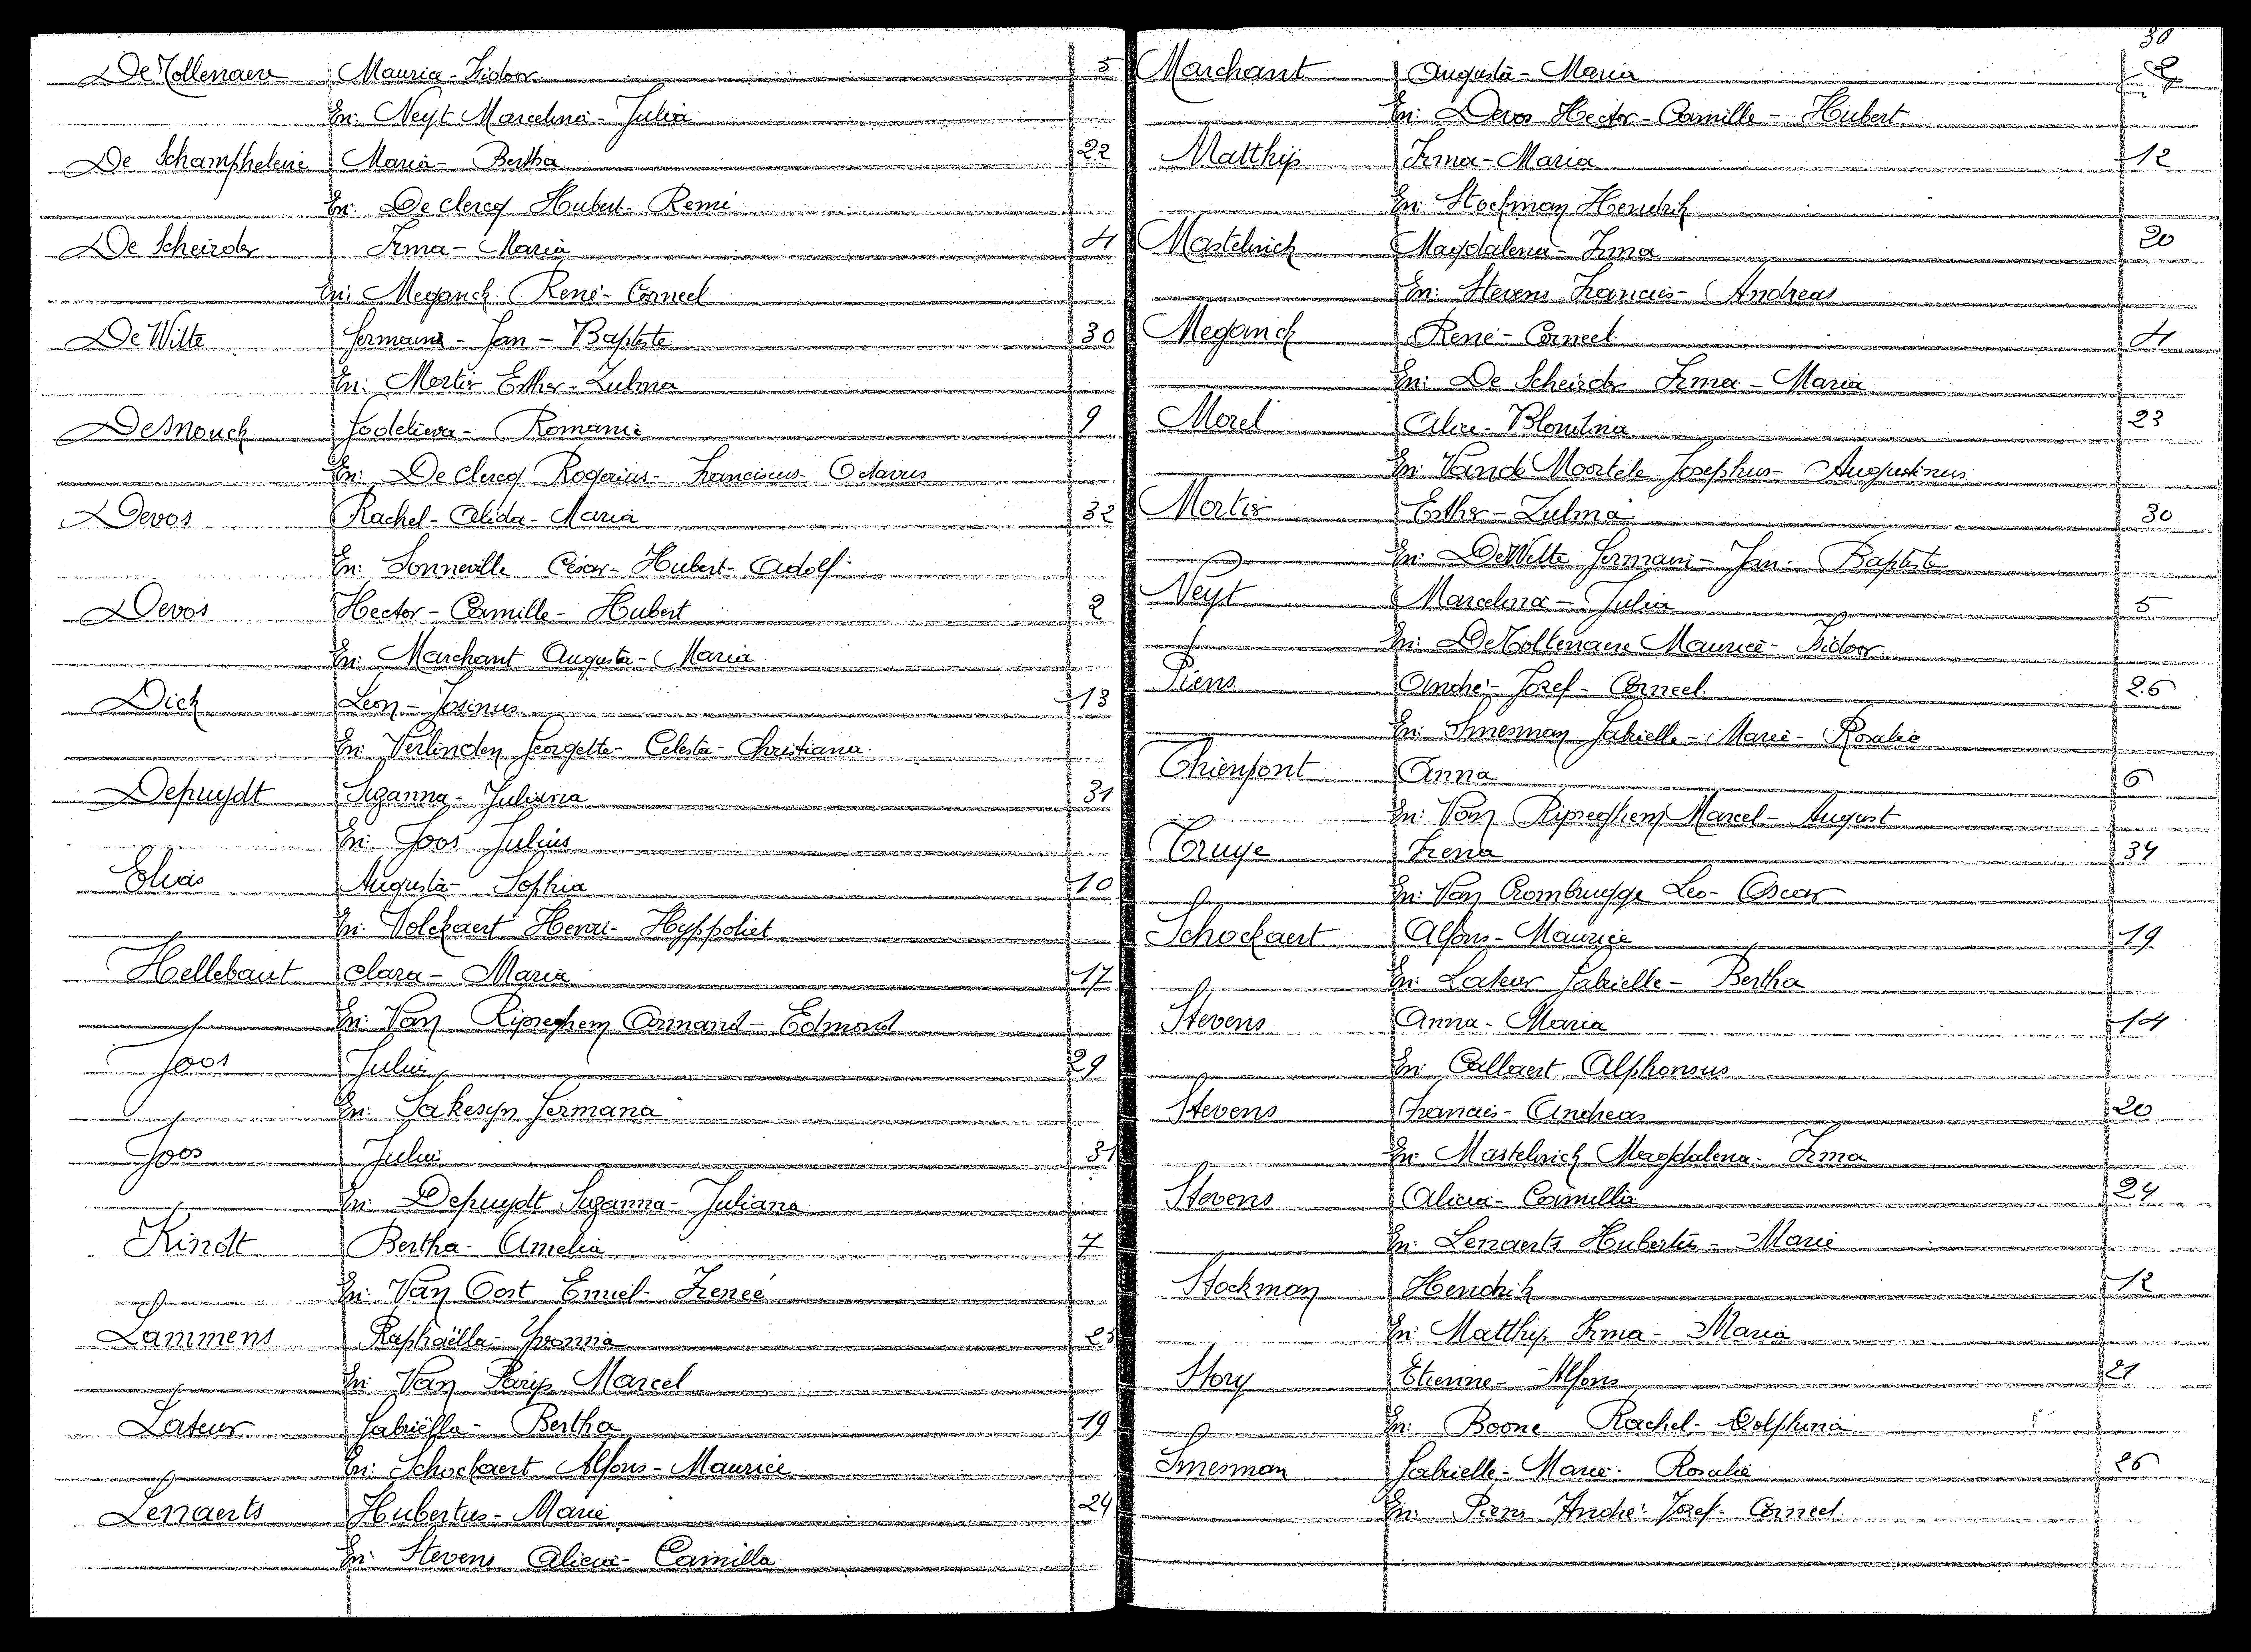 De Mollenaere Maurice - Isidoor. 5
En: Neyt Marcelina - Julia
De Schampheleire Maria - Bertha 22
En: De clercq Hubert - Remi
De Scheirder Irma - Maria 4
En: Meganck René - Corneel
De Witte Germain - Jan - Baptiste 30
En: Mortir Esther - Zulma
De Snouck Godelieva - Romanie 9
En: De Clercq Rogerius - Franciscus - Octavus
Devos Rachel - Alida - Maria 32
En: Sonneville César - Hubert - Adolf
Devos Hector - Camille - Hubert 2
En: Marchant Augusta - Maria
Dick Leon - Josinus 13
En: Verlinden Georgette - Celesta - Christiana.
Depuydt Suzanna - Juliana 31
En: Joos Julius
Elias Augusta - Sophia 10
En: Volckaert Henri - Hyppoliet
Hellebaut Clara - Maria 17
En: Van Ripseghem Armand - Edmond
Joos Julius 29
En: Sakesyn Germana
Joos Julius 31
En: Depuydt Suzanna - Juliana
Kindt Bertha - Amelia 7
En: Van Oost Emiel - Irenée
Lammens Raphaëlla - Yvonna 23
En: Van Parijs Marcel
Lateur Gabriëlla - Bertha 19
En: Schockaert Alfons - Maurice
Lenaerts Hubertus - Marie 24
En: Stevens Alicia - Camilla
30
Marchant Augusta - Maria 2
En: Devos Hector - Camille - Hubert
Matthijs Irma - Maria 12
En: Stockman Hendrik
Mastelinck Magdalena - Irma 20
En: Stevens Francies - Andreas
Meganck René - Corneel. 4
En: De Scheirder Irma - Maria
Morel Alice - Blontina 23
En: Van de Moortele Josephus - Augustinus
Mortir Esther - Zulma 30
En: DeWitte Germain - Jan - Baptiste
Neyt Marcelina - Julia 5
En: De Mollenaere Maurice - Isidoor.
Piens André - Jozef - Corneel. 26
En: Smesman Gabrielle - Marie - Rosalie
Thienpont Anna 6
En: Van Ripseghem Marcel - August
Truye Irena 34
En: Van Crombrugge Leo - Oscar
Schockaert Alfons - Maurice 19
En: Lateur Gabrielle - Bertha
Stevens Anna - Maria 14
En: Callaert Alphonsus
Stevens Francies - Andreas 20
En: Mastelinck Magdalena - Irma
Stevens Alicia - Camilla 24
En: Lenaerts Hubertus - Marie
Stockman Hendrik 12
En: Matthijs Irma - Maria
Story Etienne - Alfons 21
En: Boone Rachel - Dolphina
Smesman Gabrielle - Marie - Rosalie 26
En: Piens André - Jozef - Corneel.